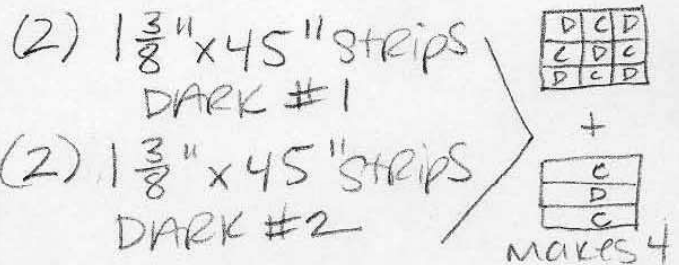 (2) 1 3/8" x 45" Strips
DARK #1
(2) 1 3/8" x 45" Strips
DARK #2
D C D
C D C
D C D
+
C
D
C
makes 4